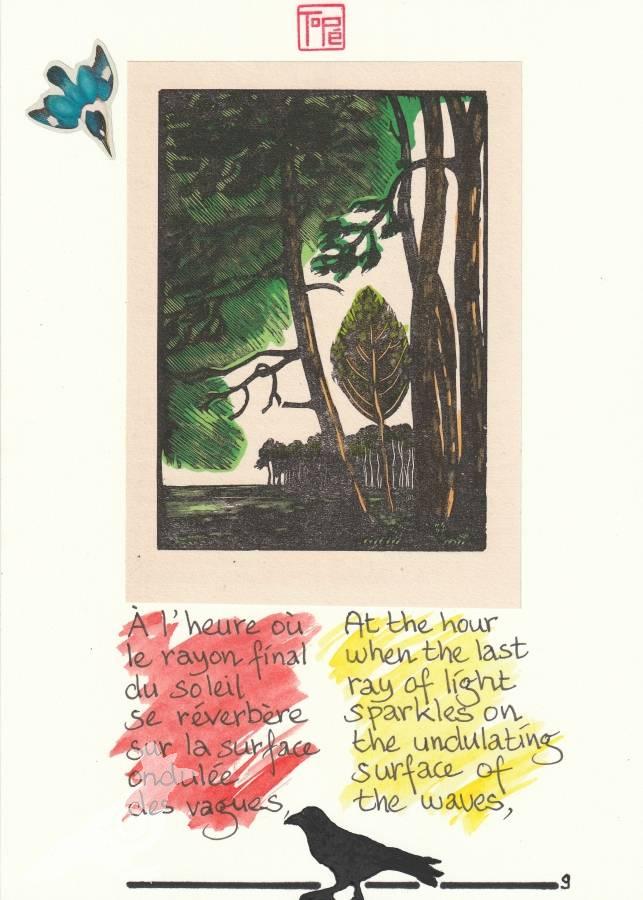 ToPé
À l'heure où
le rayon final
du soleil
se réverbère
sur la surface
ondulée
des vagues,
At the hour
when the last
ray of light
sparkles on
the undulating
surface of
the waves,
9